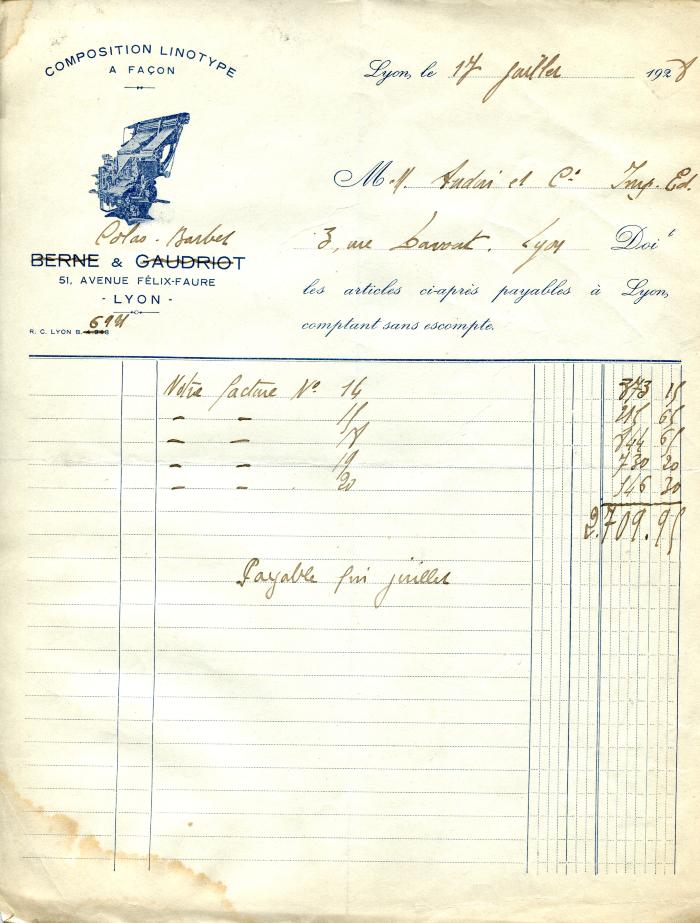 COMPOSITION LINOTYPE
A FAÇON
Lyon, le 17 juillet 1928
M.M. Audin et Cie Imp. Ed.
Colas - Barbet
3, rue Davout. Lyon Doit
BERNE & GAUDRIOT
51, AVENUE FÉLIX-FAURE
- LYON -
les articles ci-après payables à Lyon,
comptant sans escompte.
R. C. LYON B. 6941
Notre facture No. 14 773 15
— — 15 215 65
— — 18 844 65
— — 19 730 20
— — 20 146 30
2.709.95
Payable fin juillet